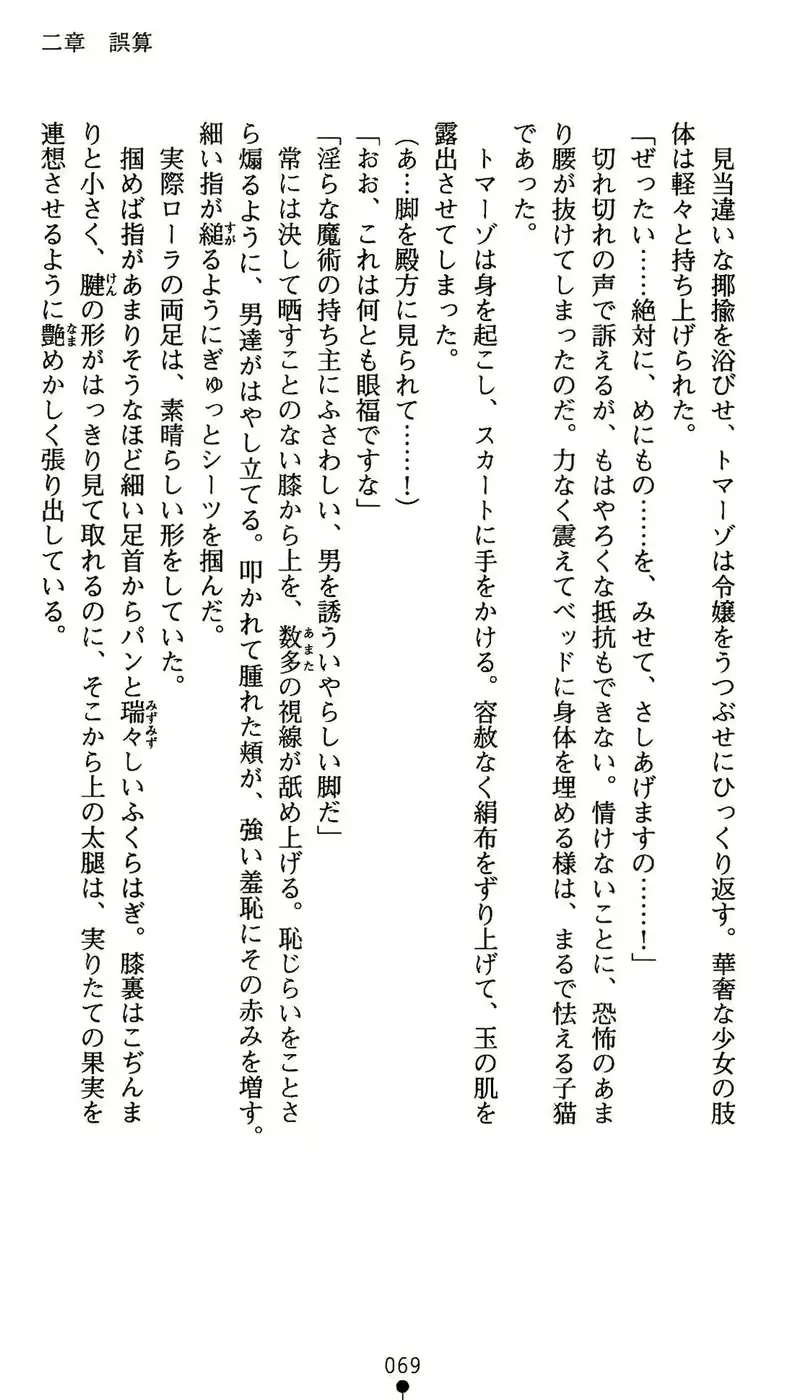 二章　誤算
見当違いな揶揄を浴びせ、トマーゾは令嬢をうつぶせにひっくり返す。華奢な少女の肢
体は軽々と持ち上げられた。
「ぜったい……絶対に、めにもの……を、みせて、さしあげますの……！」
切れ切れの声で訴えるが、もはやろくな抵抗もできない。情けないことに、恐怖のあま
り腰が抜けてしまったのだ。力なく震えてベッドに身体を埋める様は、まるで怯える子猫
であった。
トマーゾは身を起こし、スカートに手をかける。容赦なく絹布をずり上げて、玉の肌を
露出させてしまった。
(あ…脚を殿方に見られて……！)
「おお、これは何とも眼福ですな」
「淫らな魔術の持ち主にふさわしい、男を誘ういやらしい脚だ」
常には決して晒すことのない膝から上を、数多の視線が舐め上げる。恥じらいをことさ
ら煽るように、男達がはやし立てる。叩かれて腫れた頬が、強い羞恥にその赤みを増す。
細い指が縋るようにぎゅっとシーツを掴んだ。
実際ローラの両足は、素晴らしい形をしていた。
掴めば指があまりそうなほど細い足首からパンと瑞々しいふくらはぎ。膝裏はこぢんま
りと小さく、腱の形がはっきり見て取れるのに、そこから上の太腿は、実りたての果実を
連想させるように艶めかしく張り出している。
069